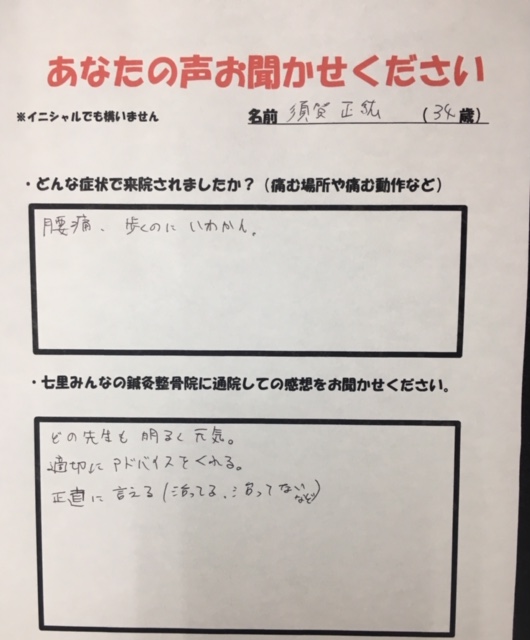 あなたの声お聞かせください
※イニシャルでも構いません
名前 須賀 正紘 (34歳)
・どんな症状で来院されましたか?(痛む場所や痛む動作など)
腰痛、歩くのに いわかん。
・七里みんなの鍼灸整骨院に通院しての感想をお聞かせください。
どの先生も 明るく元気。
適切に アドバイスをくれる。
正直に 言える(治ってる、治ってないなど)